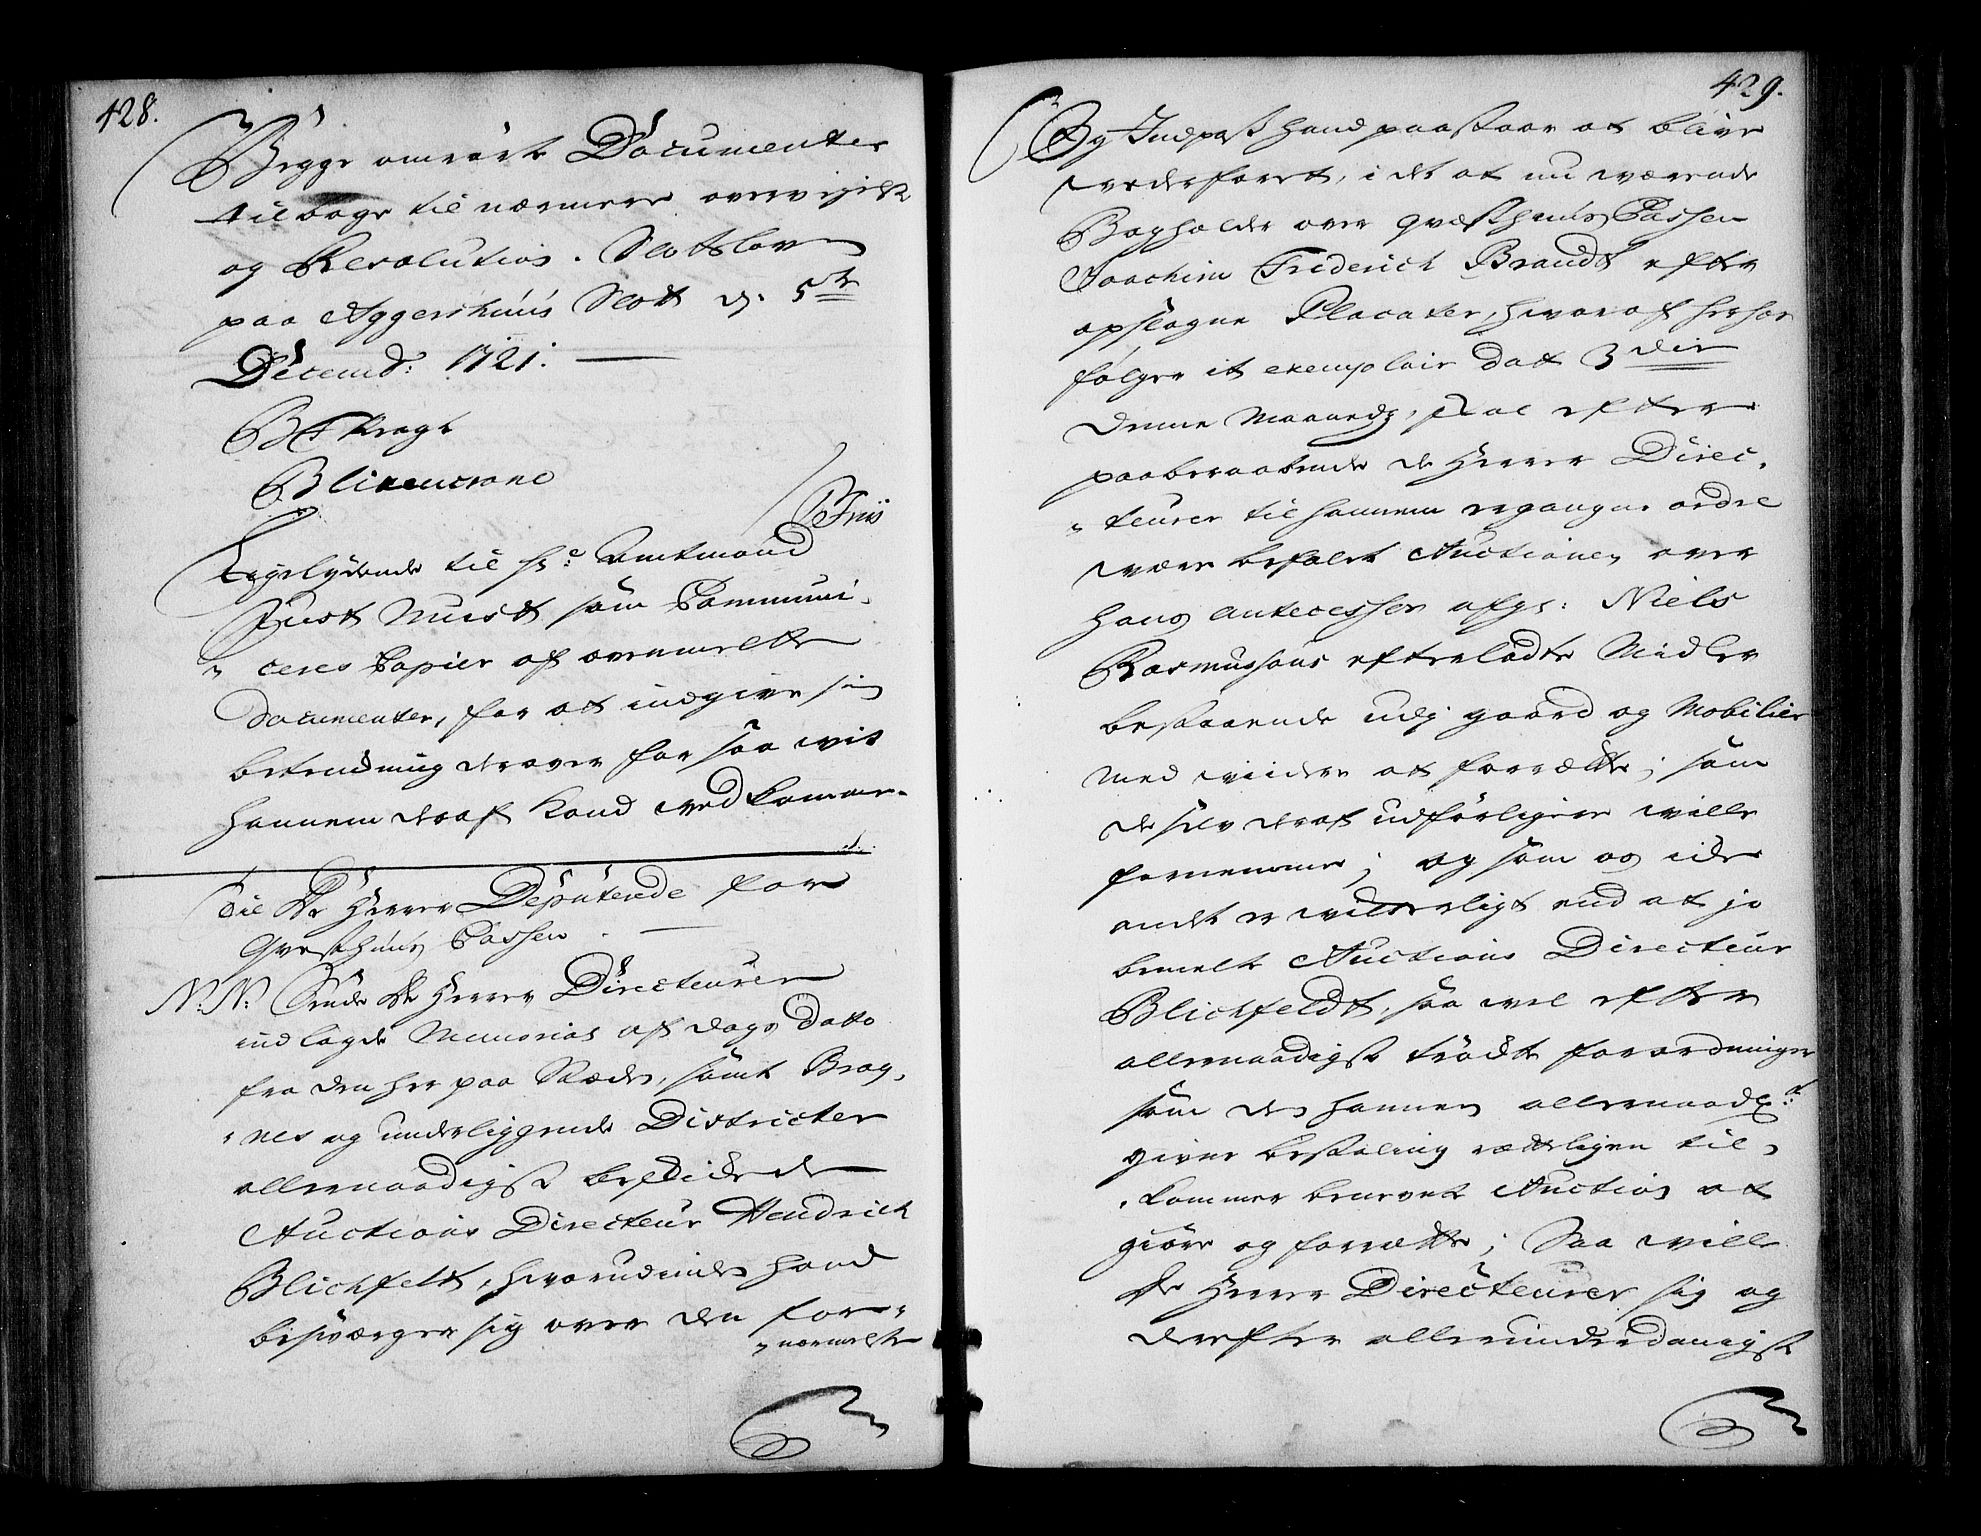 428.
Begge omrørte Documenter
tilbage til nærmere overvejelse
og Resolution. Slotsloven
paa Aggershuus Slott d. 5te
Decemb: 1721.
Blixencrone
P Friis
Ligelydende til Hr: Amtmand
Just Must som Communi-
ceres Copier af ovenmelte
Documenter, for at indgive sin
betenckning derover for saa vit
hannem deraf kand vedkomme.
Til De Herrer Deputerede for
Qvesthuus Cassen.
N: N: Sende De Herrer Directeurer
indlagde Memorial af dags Datto
fra den her paa Stæde, samt Brag-
nes og underliggende Districter
allernaadigst beskickede
Auctions Directeur Hendrich
Blichfelt, hvorudinde hand
besværger sig over den for-
nærmelse
429.
Og Indpas hand paastaar at blive
vederfaret, i det at nu værende
Bogholder over qvæsthuus Cassen
Joachim Friderich Brandt efter
opslagne Placater, hvoraf herhos
følger it exemplair dat 3die
denne Maaneds, skal efter
paaberaabende de Herrer Direc-
teurer til hannem ergangne ordre
være befalet Auctionen over
hans antecessor afg: Niels
Rasmussens efterladte Midler
bestaaende udj gaard og Mobilier
med viidere at forrætte; som
de selv deraf udførligere ville
fornemme; og som os icke
andet er vidterligt end at jo
bemelte Auctions Directeur
Blichfeldt, saa vel efter
allernaadigst trødte forordninger
som des hannem allernaadgst:
givne bestaling rætteligen til-
kommer benevnte Auction at
giøre og forrætte; Saa ville
De Herrer Directeurer sig og
derefter allerunderdanigst